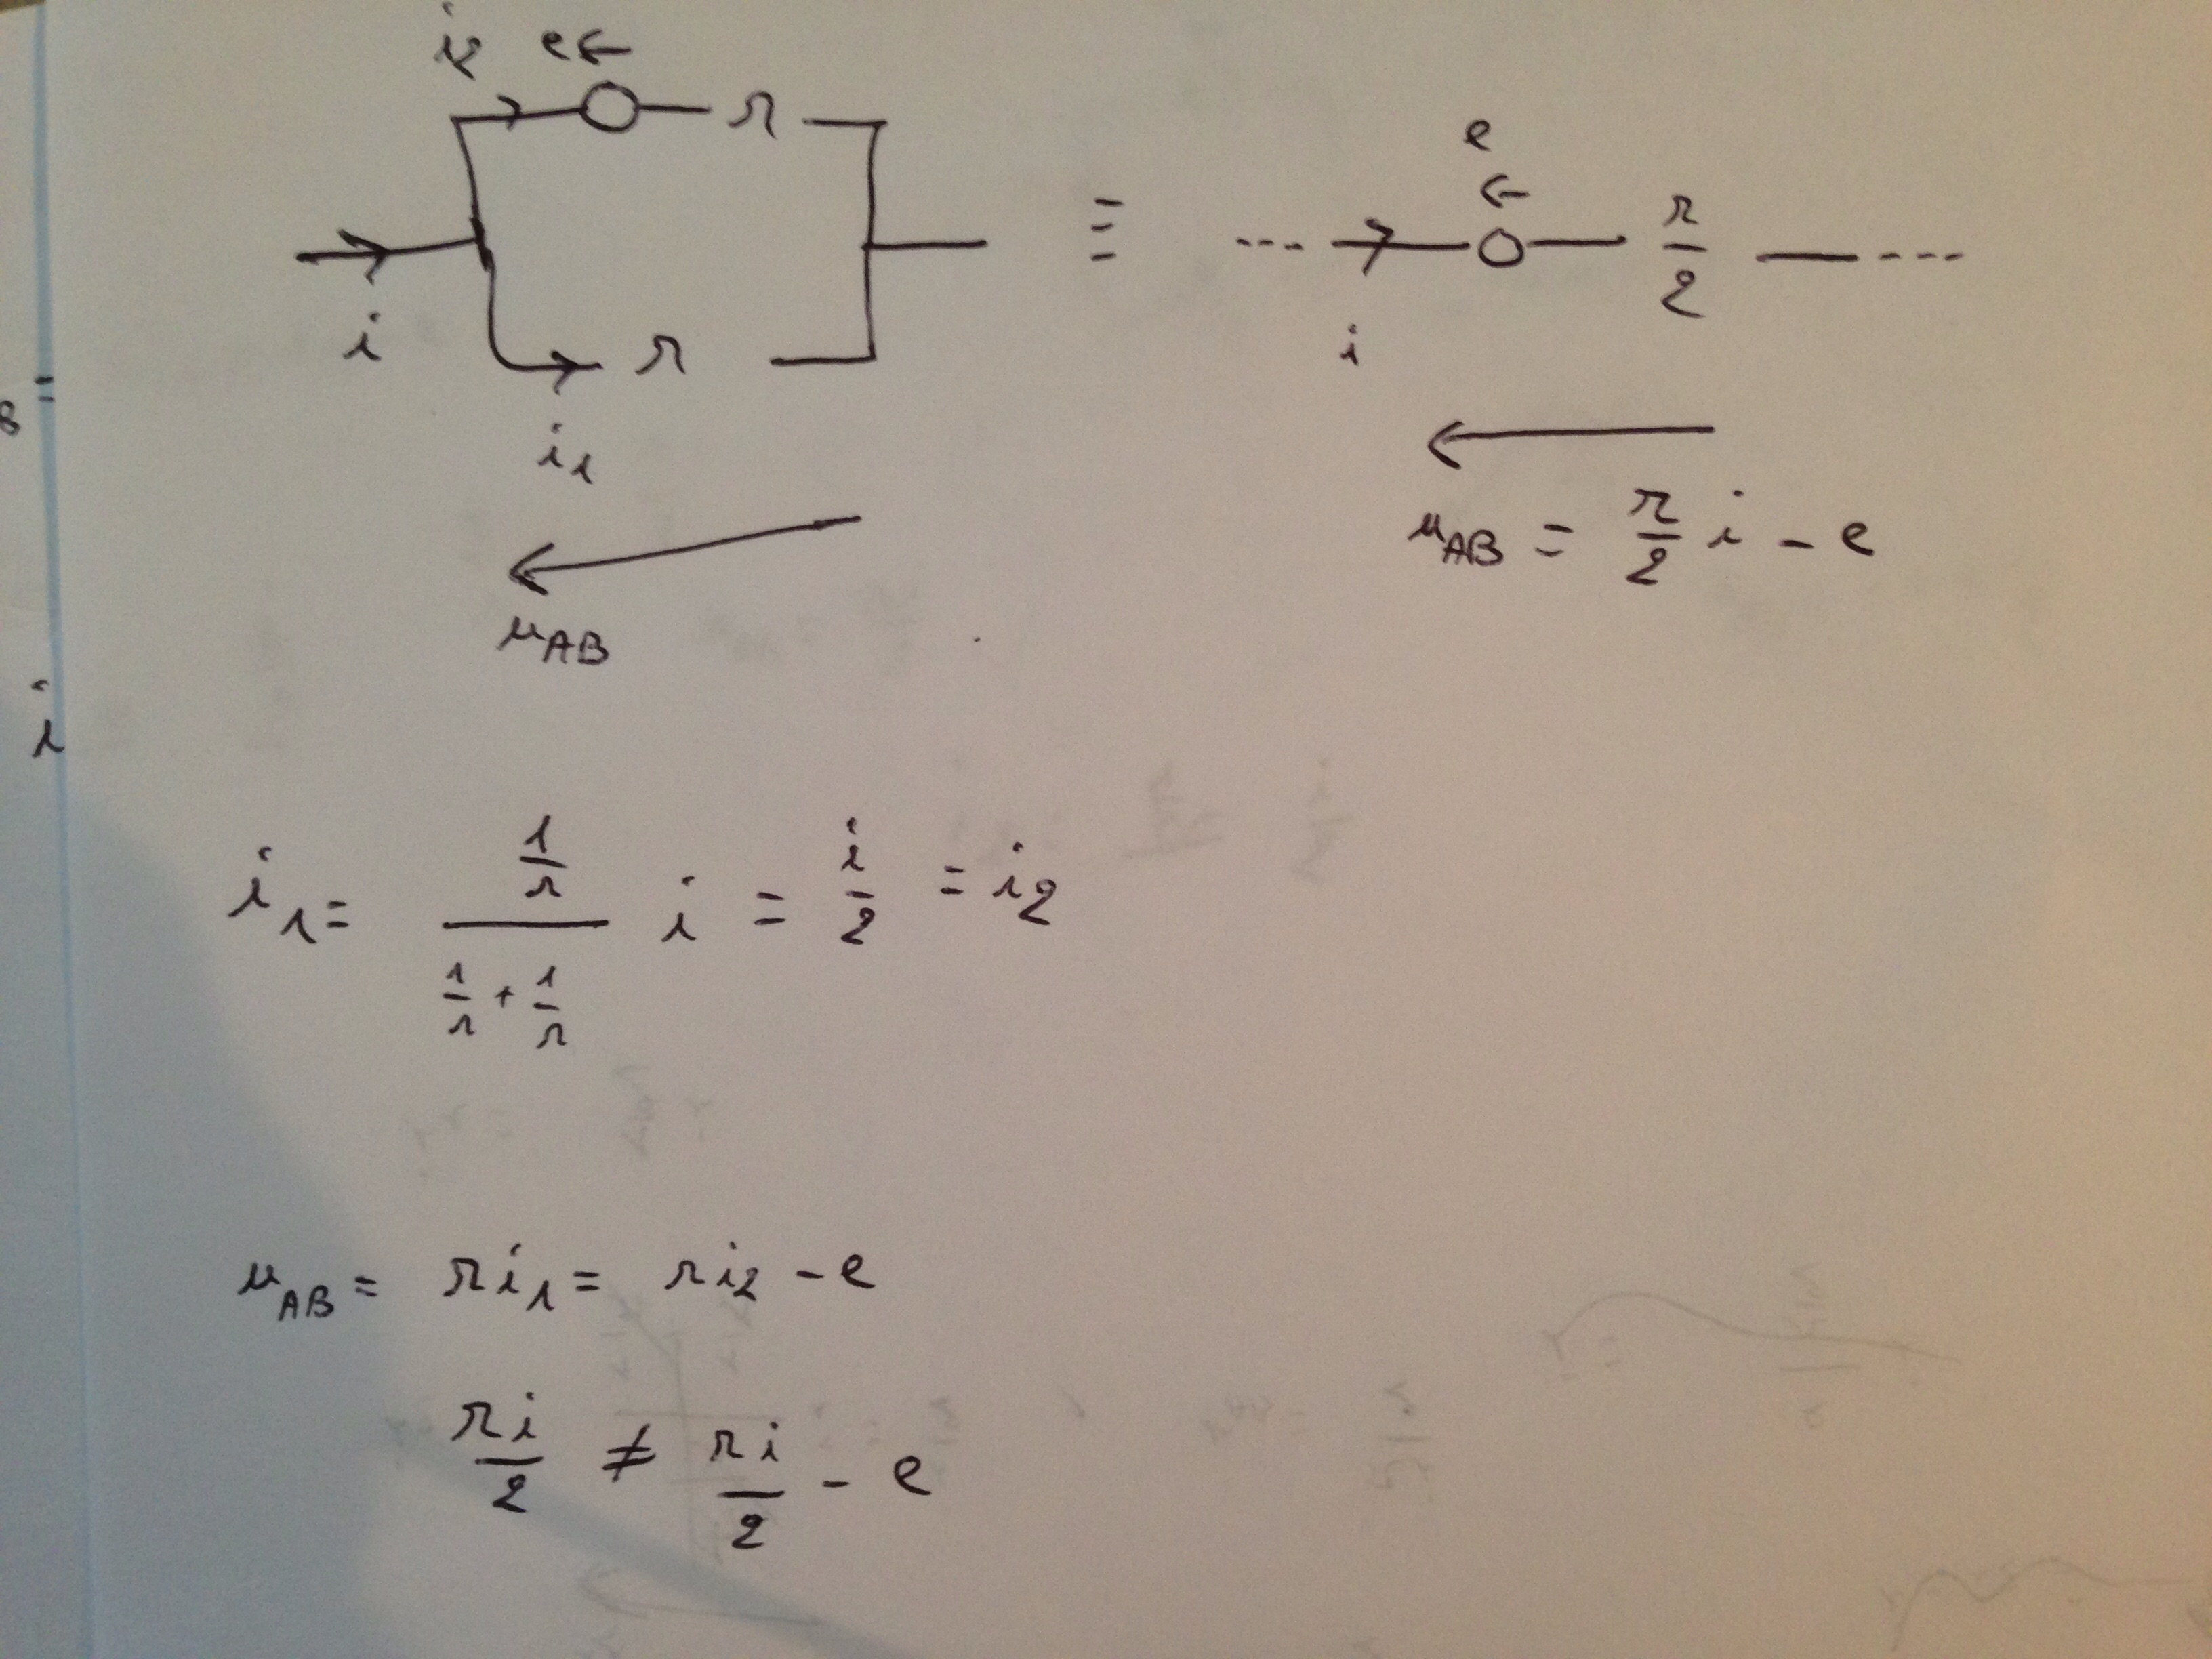 i₂ e←
r
e
← r/2
≡
i
r
i
i₁
u_AB
u_AB = r/2 i - e
B =
i
i₁ = (1/r)/(1/r + 1/r) i = i/2 = i₂
u_AB = r i₁ = r i₂ - e
r i/2 ≠ r i/2 - e